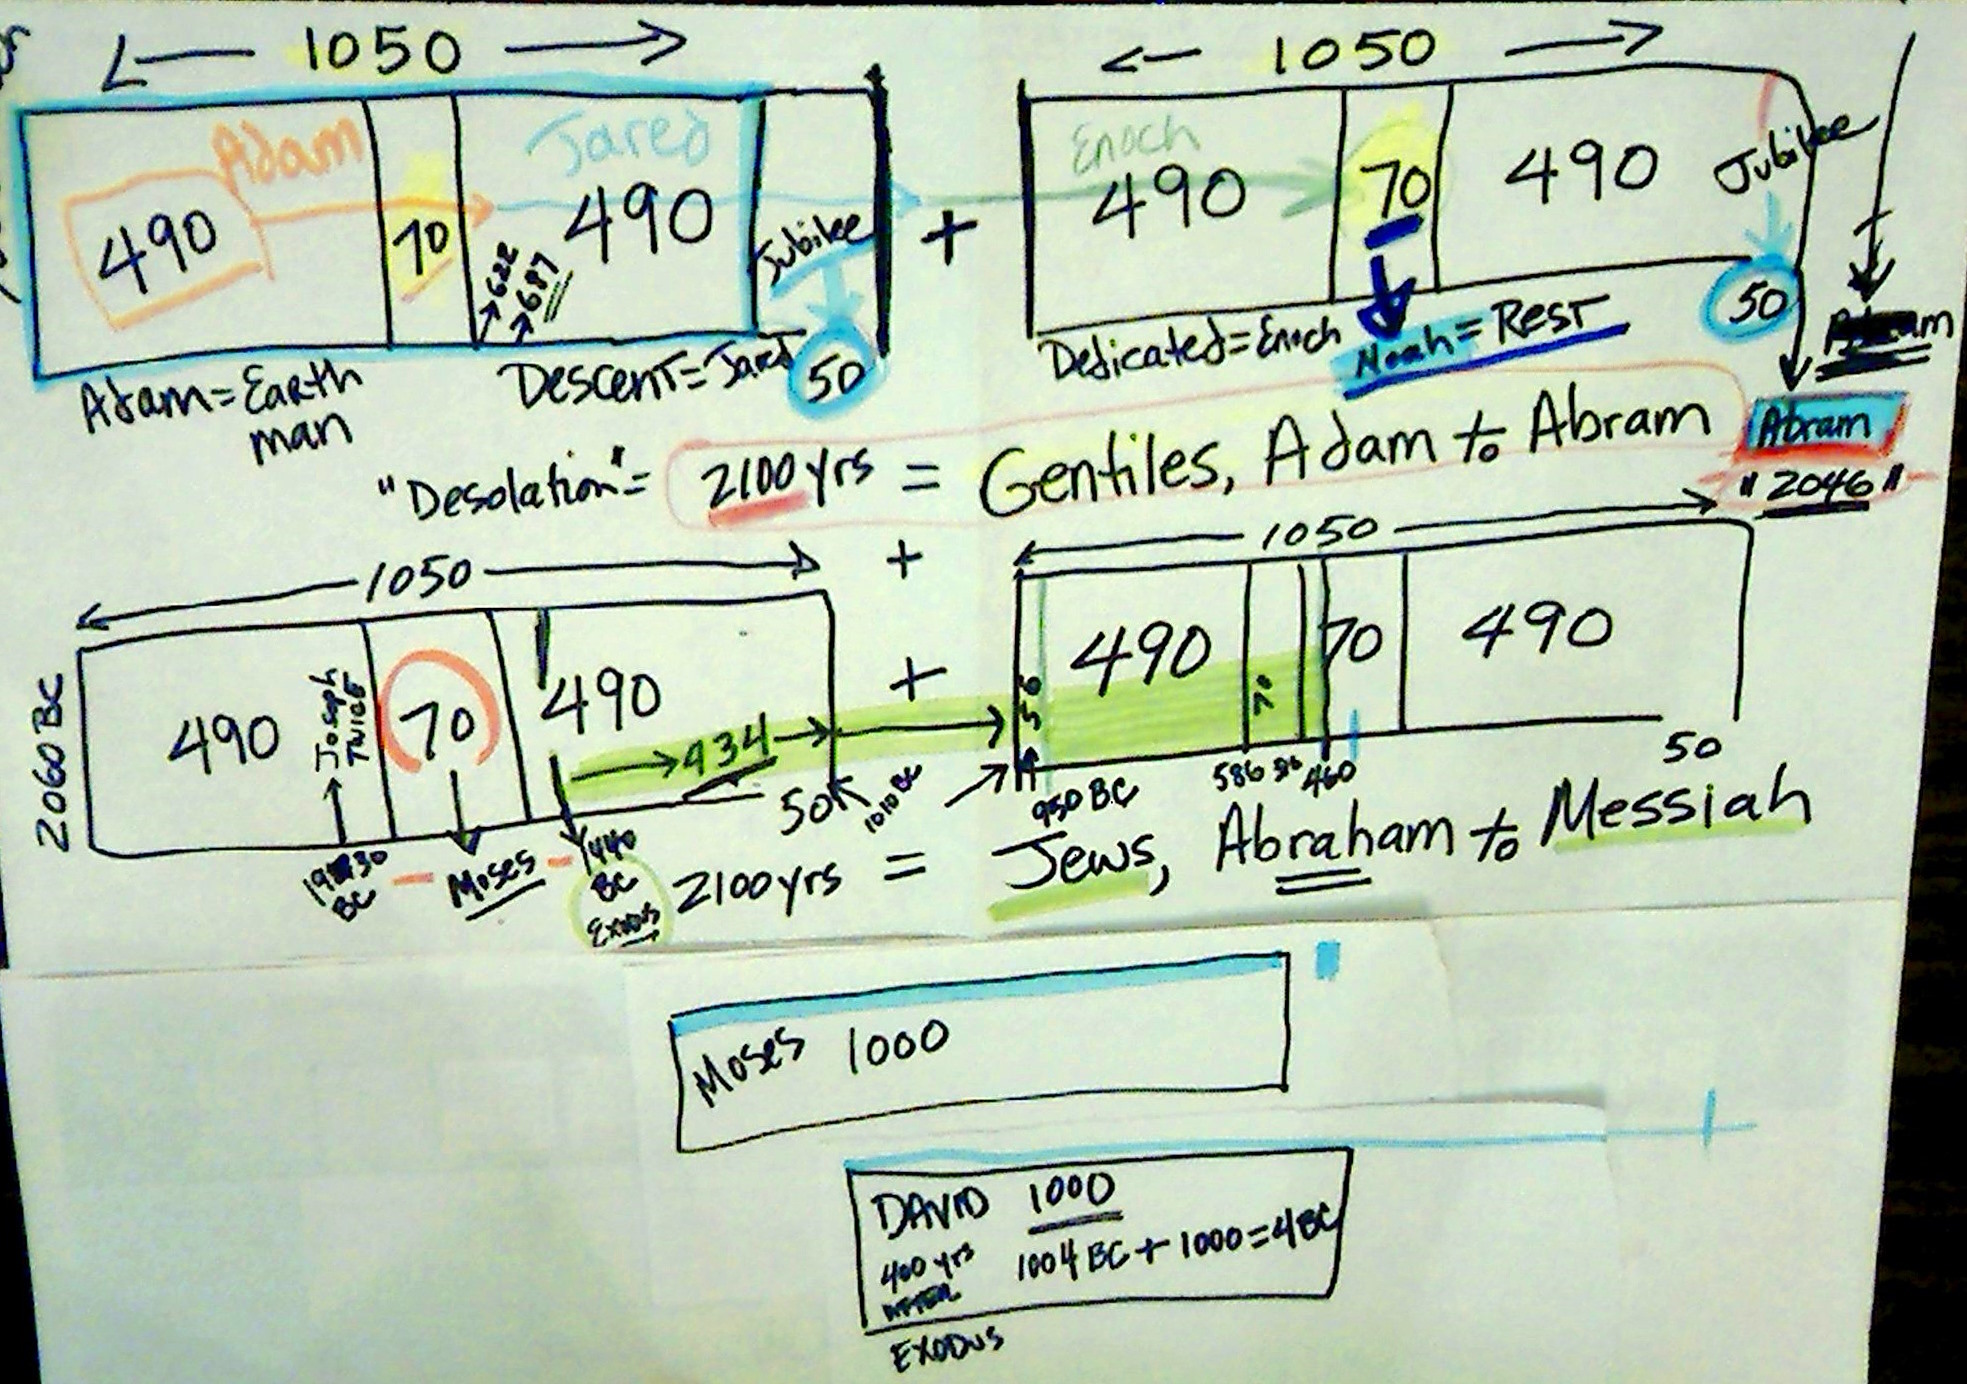 1050
1050
Adam
Jared
Enoch
490
70
490
Jubilee
+
490
70
490
Jubilee
622
687
50
50
Adam = Earth
man
Descent = Jared
Dedicated = Enoch
Noah = Rest
Abram
"Desolation" = 2100 yrs = Gentiles, Adam to Abram
"2046"
+
1050
1050
2060 BC
490
Joseph
Twice
70
490
434
50
+
490
70
70
490
1010 BC
950 BC
586
460
50
BC
Moses
1440
BC
Exodus
2100 yrs = Jews, Abraham to Messiah
Moses 1000
DAVID 1000
400 yrs
AFTER
1004 BC + 1000 = 4 BC
EXODUS